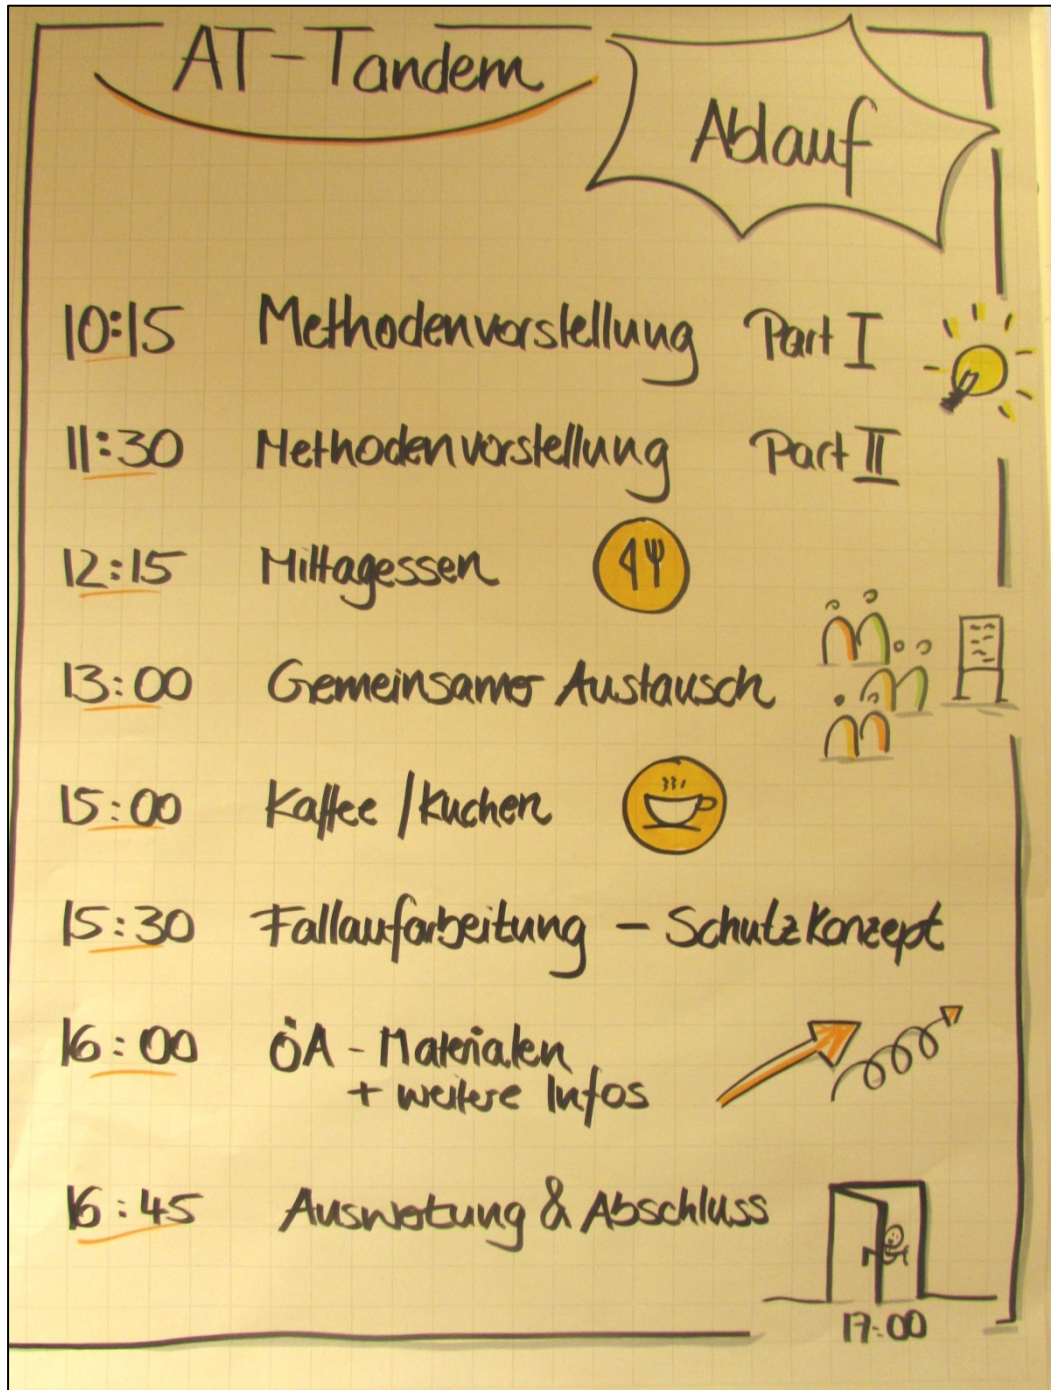 AT-Tandem
Ablauf
10:15 Methodenvorstellung Part I
11:30 Methodenvorstellung Part II
12:15 Mittagessen
13:00 Gemeinsamer Austausch
15:00 Kaffee / Kuchen
15:30 Fallaufarbeitung - Schutzkonzept
16:00 ÖA - Materialen
+ weitere Infos
16:45 Auswertung & Abschluss
17:00